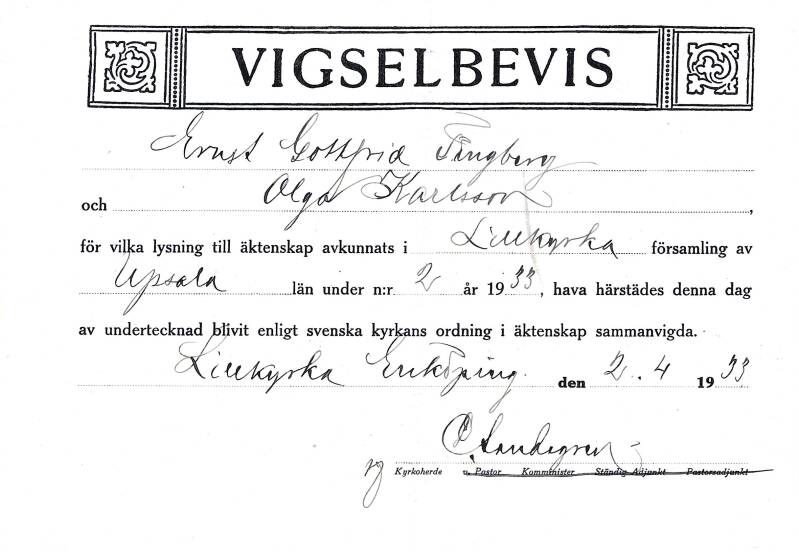 VIGSELBEVIS
Ernst Gottfrid Tingberg
och Olga Karlsson,
för vilka lysning till äktenskap avkunnats i Lillkyrka församling av
Upsala län under n:r 2 år 1933, hava härstädes denna dag
av undertecknad blivit enligt svenska kyrkans ordning i äktenskap sammanvigda.
Lillkyrka Enköping den 2.4 1933
C. Sandegren
Kyrkoherde v. Pastor Komminister Ständig Adjunkt Pastorsadjunkt